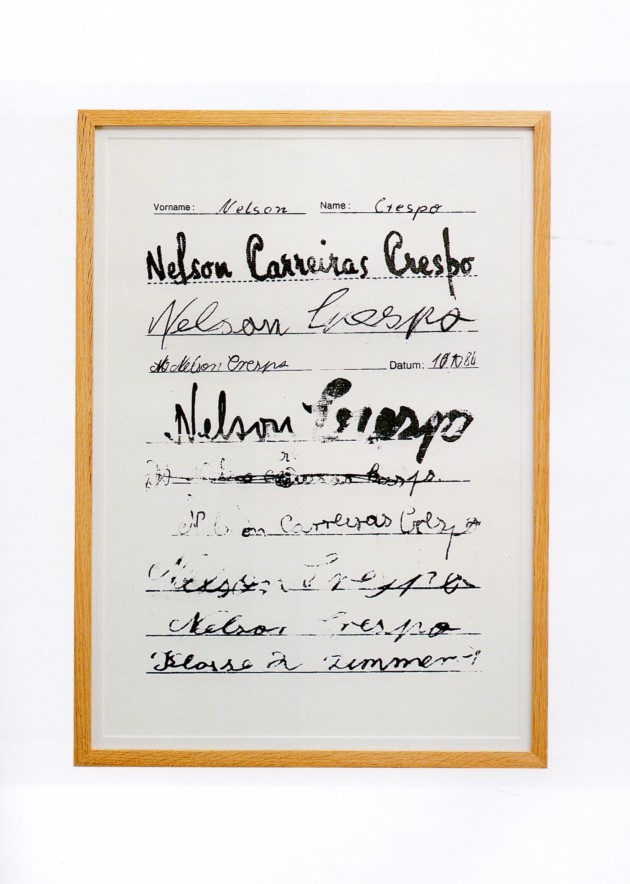 Vorname: Nelson Name: Crespo
Nelson Carreiras Crespo
Nelson Crespo
Nelson Crespo Datum:
Nelson Crespo
Nelson Carreiras Crespo
Nelson Crespo
Nelson Crespo
Klasse 2 Zimmer